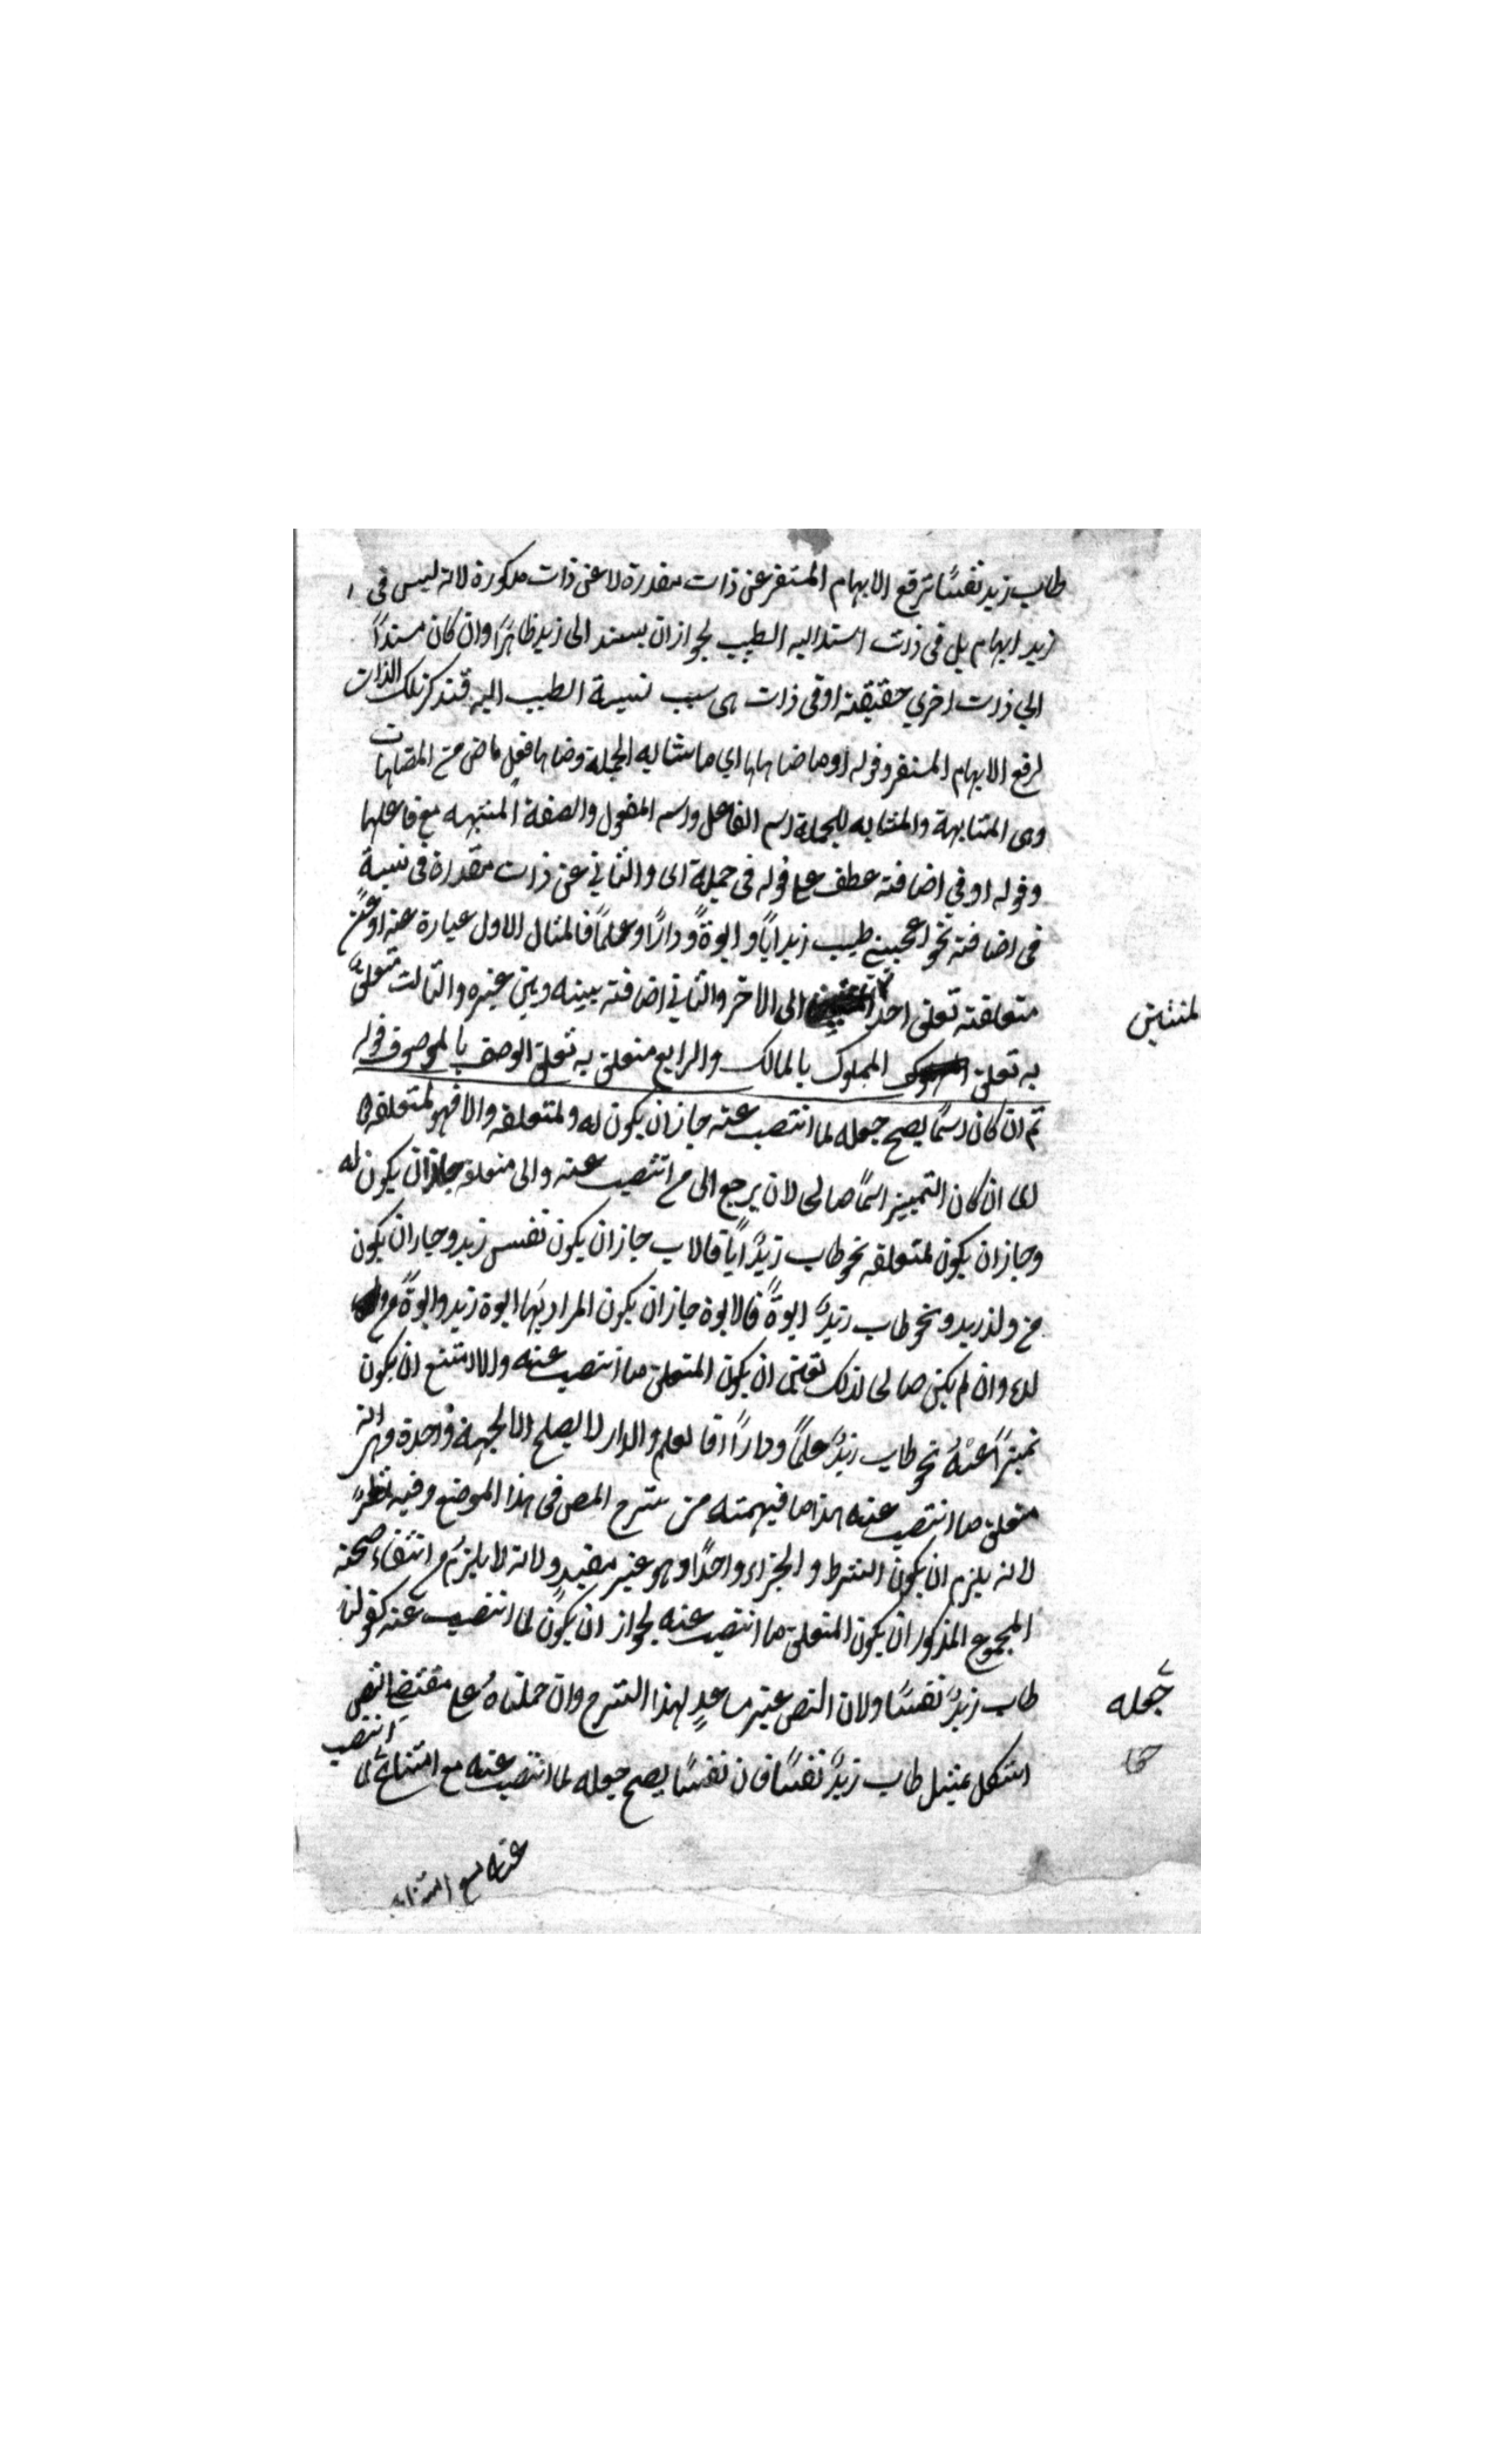 طاب زيد نفسًا ترفع الابهام المستقر عن ذات مقدرة لا عن ذات مذكورة لانه ليس فى
زيد ابهام بل فى ذات اسند اليه الطيب لجواز ان يسند الى زيد ظاهرًا وان كان مسندًا
الي ذات اخري حقيقة او فى ذات هى سبب نسبة الطيب اليه فتذكر تلك الذات
لرفع الابهام المستقر وقوله او ما ضاهاها اي ما شابه الجملة وضاها فعل ماض من المضاهات
وهى المشابهة والمشابه للجملة اسم الفاعل واسم المفعول والصفة المشبهه مع فاعلها
وقوله او في اضافته عطف على قوله فى جملة اى والثاني عن ذات مقدرة فى نسبة
فى اضافته نحو اعجبني طيب زيد ابًا وابوةً ودارًا وعلمًا فالمثال الاول عبارة عنه او عن
متعلقه تعلق احد المنتسبين الى الاخر والثاني اضافته بينه وبين غيره والثالث متعلق
به تعلق المملوك بالمالك والرابع متعلق به تعلق الوصف بالموصوف قوله
ثم ان كان اسمًا يصح جعله لما انتصب عنه جاز ان يكون له ولمتعلقه والا فهو لمتعلقه
اى ان كان التمييز اسمًا صالحا لان يرجع الى من انتصب عنه والى متعلقه جاز ان يكون له
وجاز ان يكون لمتعلقه نحو طاب زيدٌ ابًا فالاب جاز ان يكون نفس زيد وجاز ان يكون
من ولد زيد ونحو طاب زيدٌ ابوةً فالابوة جاز ان يكون المراد بها ابوة زيد وابوة من ولد
له وان لم يكن صالحا لذلك تعين ان يكون المتعلق ما انتصب عنه والا امتنع ان يكون
تمييزًا عنهُ نحو طاب زيدٌ علمًا ودارًا فالعلم والدار لا يصلح الا لجهة واحدة وهى انه
متعلق ما انتصب عنه هذا ما فهمته من شرح المص فى هذا الموضع وفيه نظرٌ
لانه يلزم ان يكون الشرط والجزاء واحدًا وهو غير مفيد ولانه لا يلزم من انتفاء صحة
المجموع المذكور ان يكون المتعلق ما انتصب عنه لجواز ان يكون لما انتصب عنه كقولنا
جعله
طاب زيدٌ نفسًا ولان النص غير مساعدٍ لهذا الشرح وان حملناهُ على مقتضى النص
اشكل بمثل طاب زيدٌ نفسًا فان نفسًا يصح جعله لما انتصب عنه مع امتناع لما انتصب
عنه مع امتناع